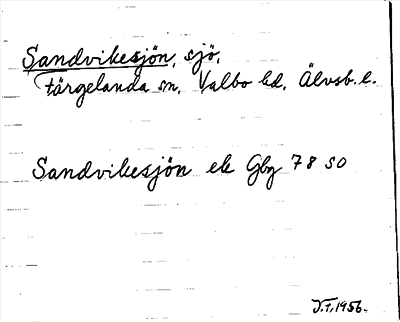 Sandvikesjön, sjö,
Färgelanda sn, Valbo hd, Älvsb. l.
Sandvikesjön ek Gbg 78 SO
1956.